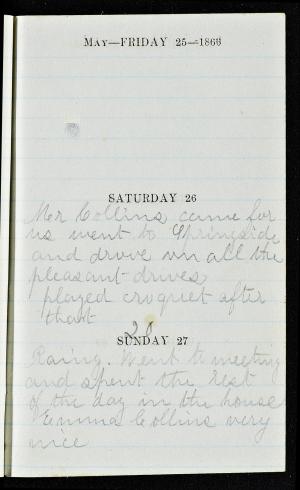 May—FRIDAY 25—1866
SATURDAY 26
Mr Collins came for
us went to Springside
and drove in all the
pleasant drives
played croquet after
that
20
SUNDAY 27
Rainy. Went to meeting
and spent the rest
of the day in the house
Emma Collins very
nice